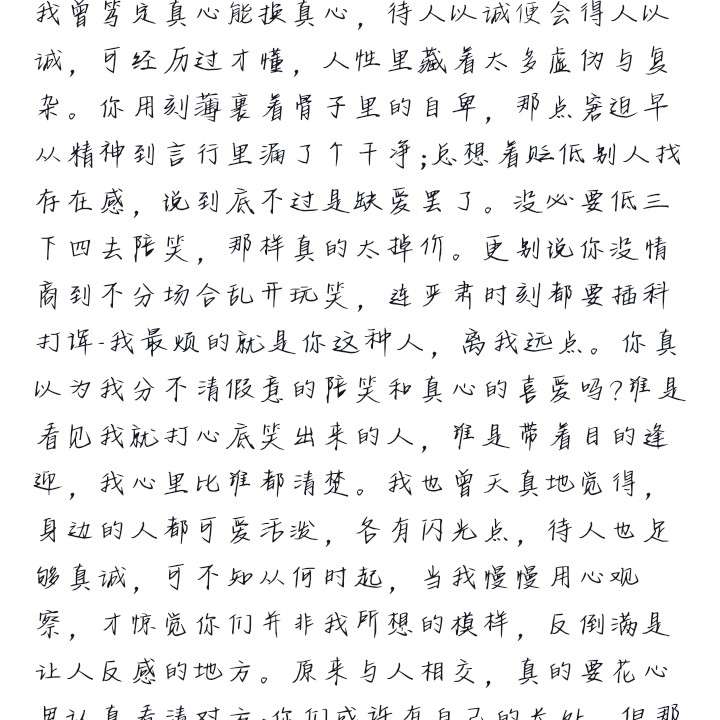 我曾笃定真心能换真心，待人以诚便会得人以
诚，可经历过才懂，人性里藏着太多虚伪与复
杂。你用刻薄裹着骨子里的自卑，那点窘迫早
从精神到言行里漏了个干净;总想着贬低别人找
存在感，说到底不过是缺爱罢了。没必要低三
下四去陪笑，那样真的太掉价。更别说你没情
商到不分场合乱开玩笑，连严肃时刻都要插科
打诨-我最烦的就是你这种人，离我远点。你真
以为我分不清假意的陪笑和真心的喜爱吗?谁是
看见我就打心底笑出来的人，谁是带着目的逢
迎，我心里比谁都清楚。我也曾天真地觉得，
身边的人都可爱活泼，各有闪光点，待人也足
够真诚，可不知从何时起，当我慢慢用心观
察，才惊觉你们并非我所想的模样，反倒满是
让人反感的地方。原来与人相交，真的要花心
思认真看清对方:你们或许有自己的长处，但那